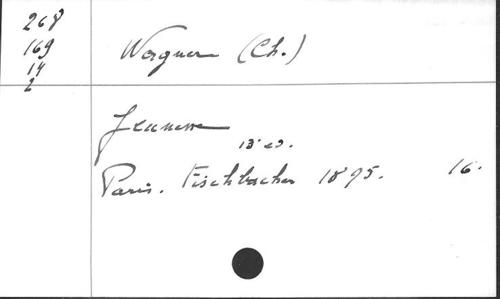 268
169
14
2
Wagner (Ch.)
Jeunesse
13 ed.
Paris. Fischbacher 1895. 16.